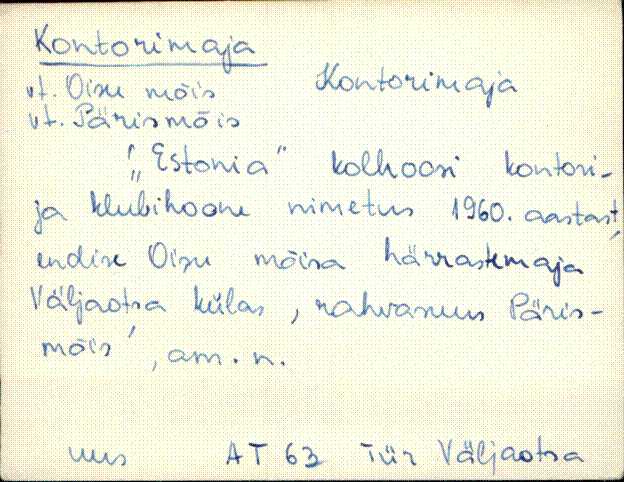 Kontorimaja
vt. Oisu mõis Kontorimaja
vt. Pärismõis
'„Estonia" kolhoosi kontori-
ja klubihoone nimetus 1960. aastast,
endise Oisu mõisa härrastemaja
Väljaotsa külas, rahvasuus Päris-
mõis', am. n.
uus AT 63 Tür Väljaotsa